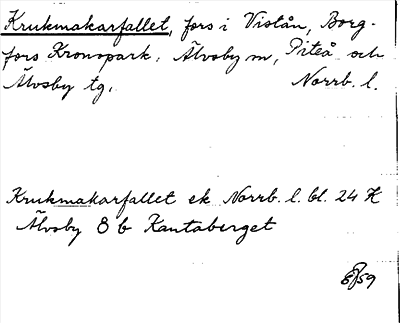 Krukmakarfallet, fors i Vistån, Borg-
fors Kronopark, Älvsby m, Piteå och
Älvsby tg, Norrb. l.
Krukmakarfallet ek Norrb. l. bl. 24 K
Älvsby 8 b Kantaberget